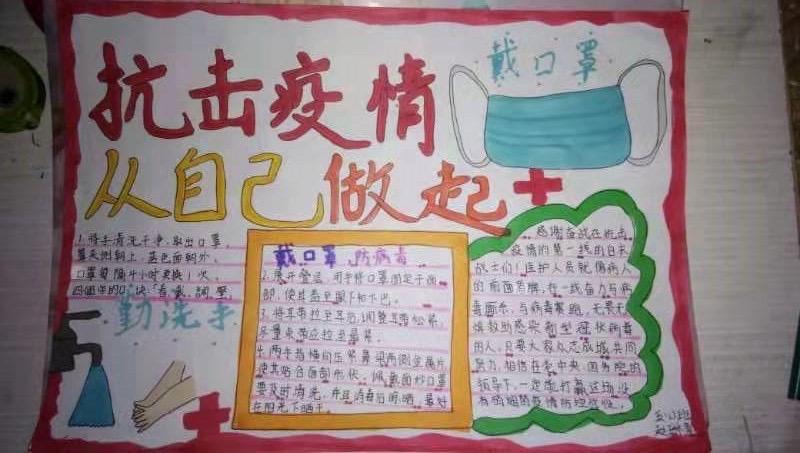 抗击疫情
从自己做起
戴口罩
1.将手清洗干净,取出口罩,
罩夹侧朝上,蓝色面朝外。
口罩每隔4小时更换1次。
四个
勤洗手
戴口罩 防病毒
2.展开叠层,用手将口罩固定于面
部,使其盖至眼下和下巴。
3.将耳带拉至耳后,调整耳带松紧,
尽量免带应拉至最紧。
4.两手指横向压紧鼻梁两侧金属片
使其贴合面部形状。佩戴面纱口罩
要及时清洗,并且消毒后再晒,最好
在阳光下晒干。
感谢奋战在抗击
疫情的第一线的白衣
战士们!医护人员就像病人
的前面名牌,在一线奋力与病
毒面杀,与病毒赛跑,无畏无
惧救助感染新型冠状病毒
的人,只要大家众志成城共同
努力,相信在党中央,国务院的
领导下,一定能打赢这场没
有硝烟的疫情防控战役。